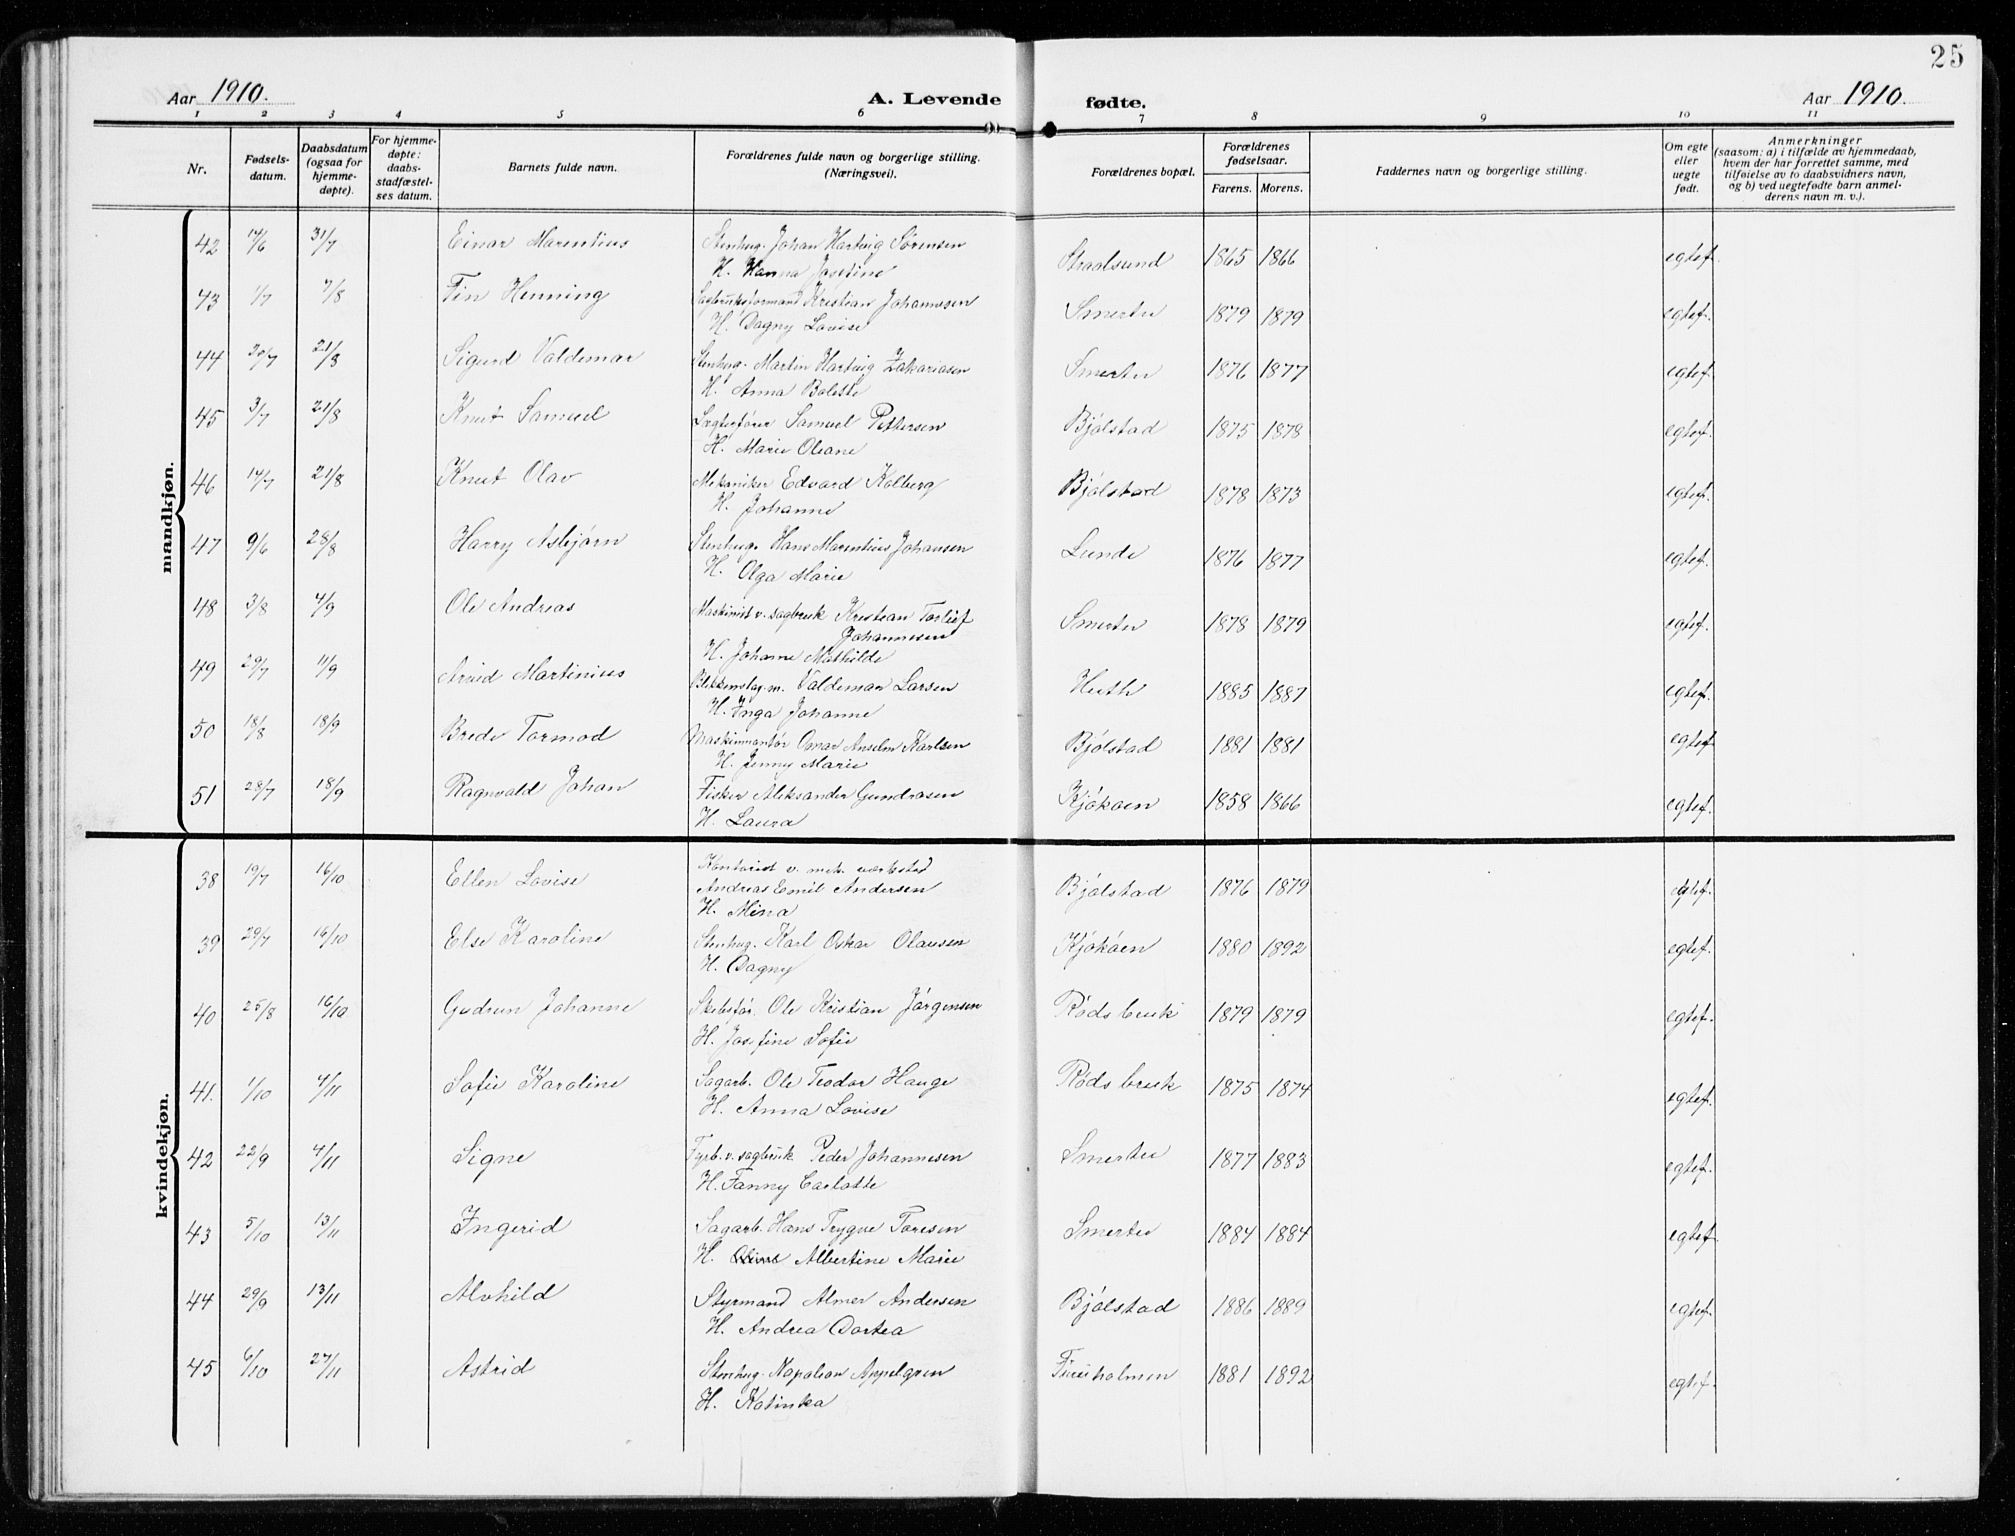 25
Aar 1910.
A. Levende fødte.
Aar 1910.
1 2 3 4 5 6 7 8 9 10 11
Nr.
Fødsels-
datum.
Daabsdatum
(ogsaa for
hjemme-
døpte).
For hjemme-
døpte:
daabs-
stadfæstel-
ses datum.
Barnets fulde navn.
Forældrenes fulde navn og borgerlige stilling.
(Næringsvei).
Forældrenes bopæl.
Forældrenes
fødselsaar.
Farens. Morens.
Faddernes navn og borgerlige stilling.
Om egte
eller
uegte
født.
Anmerkninger
(saasom: a) i tilfælde av hjemmedaab,
hvem der har forrettet samme, med
tilføielse av to daabsvidners navn,
og b) ved uegtefødte barn anmel-
derens navn m. v.).
mandkjøn.
42 14/6 31/7 Einar Marentius Stenhug. Johan Hartvig Sørensen Straalsund 1865 1866 egtef.
H. Hanna Josefine
43 1/7 7/8 Fin Henning Sagbruksformand Kristian Johannesen Smertu 1879 1879 egtef.
H. Dagny Lovise
44 20/7 21/8 Sigurd Valdemar Stenhug. Martin Hartvig Zakariasen Smertu 1876 1877 egtef.
H. Anna Boleste
45 3/7 21/8 Knut Samuel Samuel Pettersen Bjølstad 1875 1878 egtef.
H. Marie Oleane
46 14/7 21/8 Knut Olav Mekaniker Edvard Kolberg Bjølstad 1878 1873 egtef.
H. Johanne
47 9/6 28/8 Harry Asbjørn Stenhug. Hans Marentius Johansen Lunde 1876 1877 egtef.
H. Olga Marie
48 3/8 4/9 Ole Andreas Maskinist v. sagbruk Kristian Torleif Smertu 1878 1879 egtef.
Johannesen
H. Johanne Mathilde
49 29/7 11/9 Arvid Martinius Blikkenslag.m. Valdemar Larsen Huth 1885 1887 egtef.
H. Inga Johanne
50 18/8 18/9 Brede Tormod Maskinmontør Omar Anselm Karlsen Bjølstad 1881 1881 egtef
H. Jenny Marie
51 28/7 18/9 Ragnvald Johan Fisker Aleksander Gundrosen Kjøkøen 1858 1866 egtef.
H. Laura
kvindekjøn.
38 19/7 16/10 Ellen Lovise Kontorist v. mek. værksted
Andreas Emil Andersen Bjølstad 1876 1879 egtef.
H. Mina
39 29/7 16/10 Else Karoline Stenhug. Karl Oskar Olausen Kjøkøen 1880 1892 egtef.
H. Dagny
40 25/8 16/10 Gudrun Johanne Ole Kristian Jørgensen Røds bruk 1879 1879 egtef.
H. Josefine Sofie
41. 1/10 4/11 Sofie Karoline Sagarb. Ole Teodor Hauge Røds bruk 1875 1874 egtef.
H. Anna Lovise
42 22/9 4/11 Signe Fyrb. v. sagbruk Peder Johannesen Smertu 1877 1883 egtef.
H. Fanny Carlotte
43 5/10 13/11 Ingerid Sagarb. Hans Trygve Toresen Smertu 1884 1884 egtef.
H. Albertine Marie
44 29/9 13/11 Alvhild Styrmand Almer Andersen Bjølstad 1886 1889 egtef.
H. Andrea Dortea
45 6/10 27/11 Astrid Stenhug. Napolean Appelgren Furuholmen 1881 1892 egtef.
H. Katinka